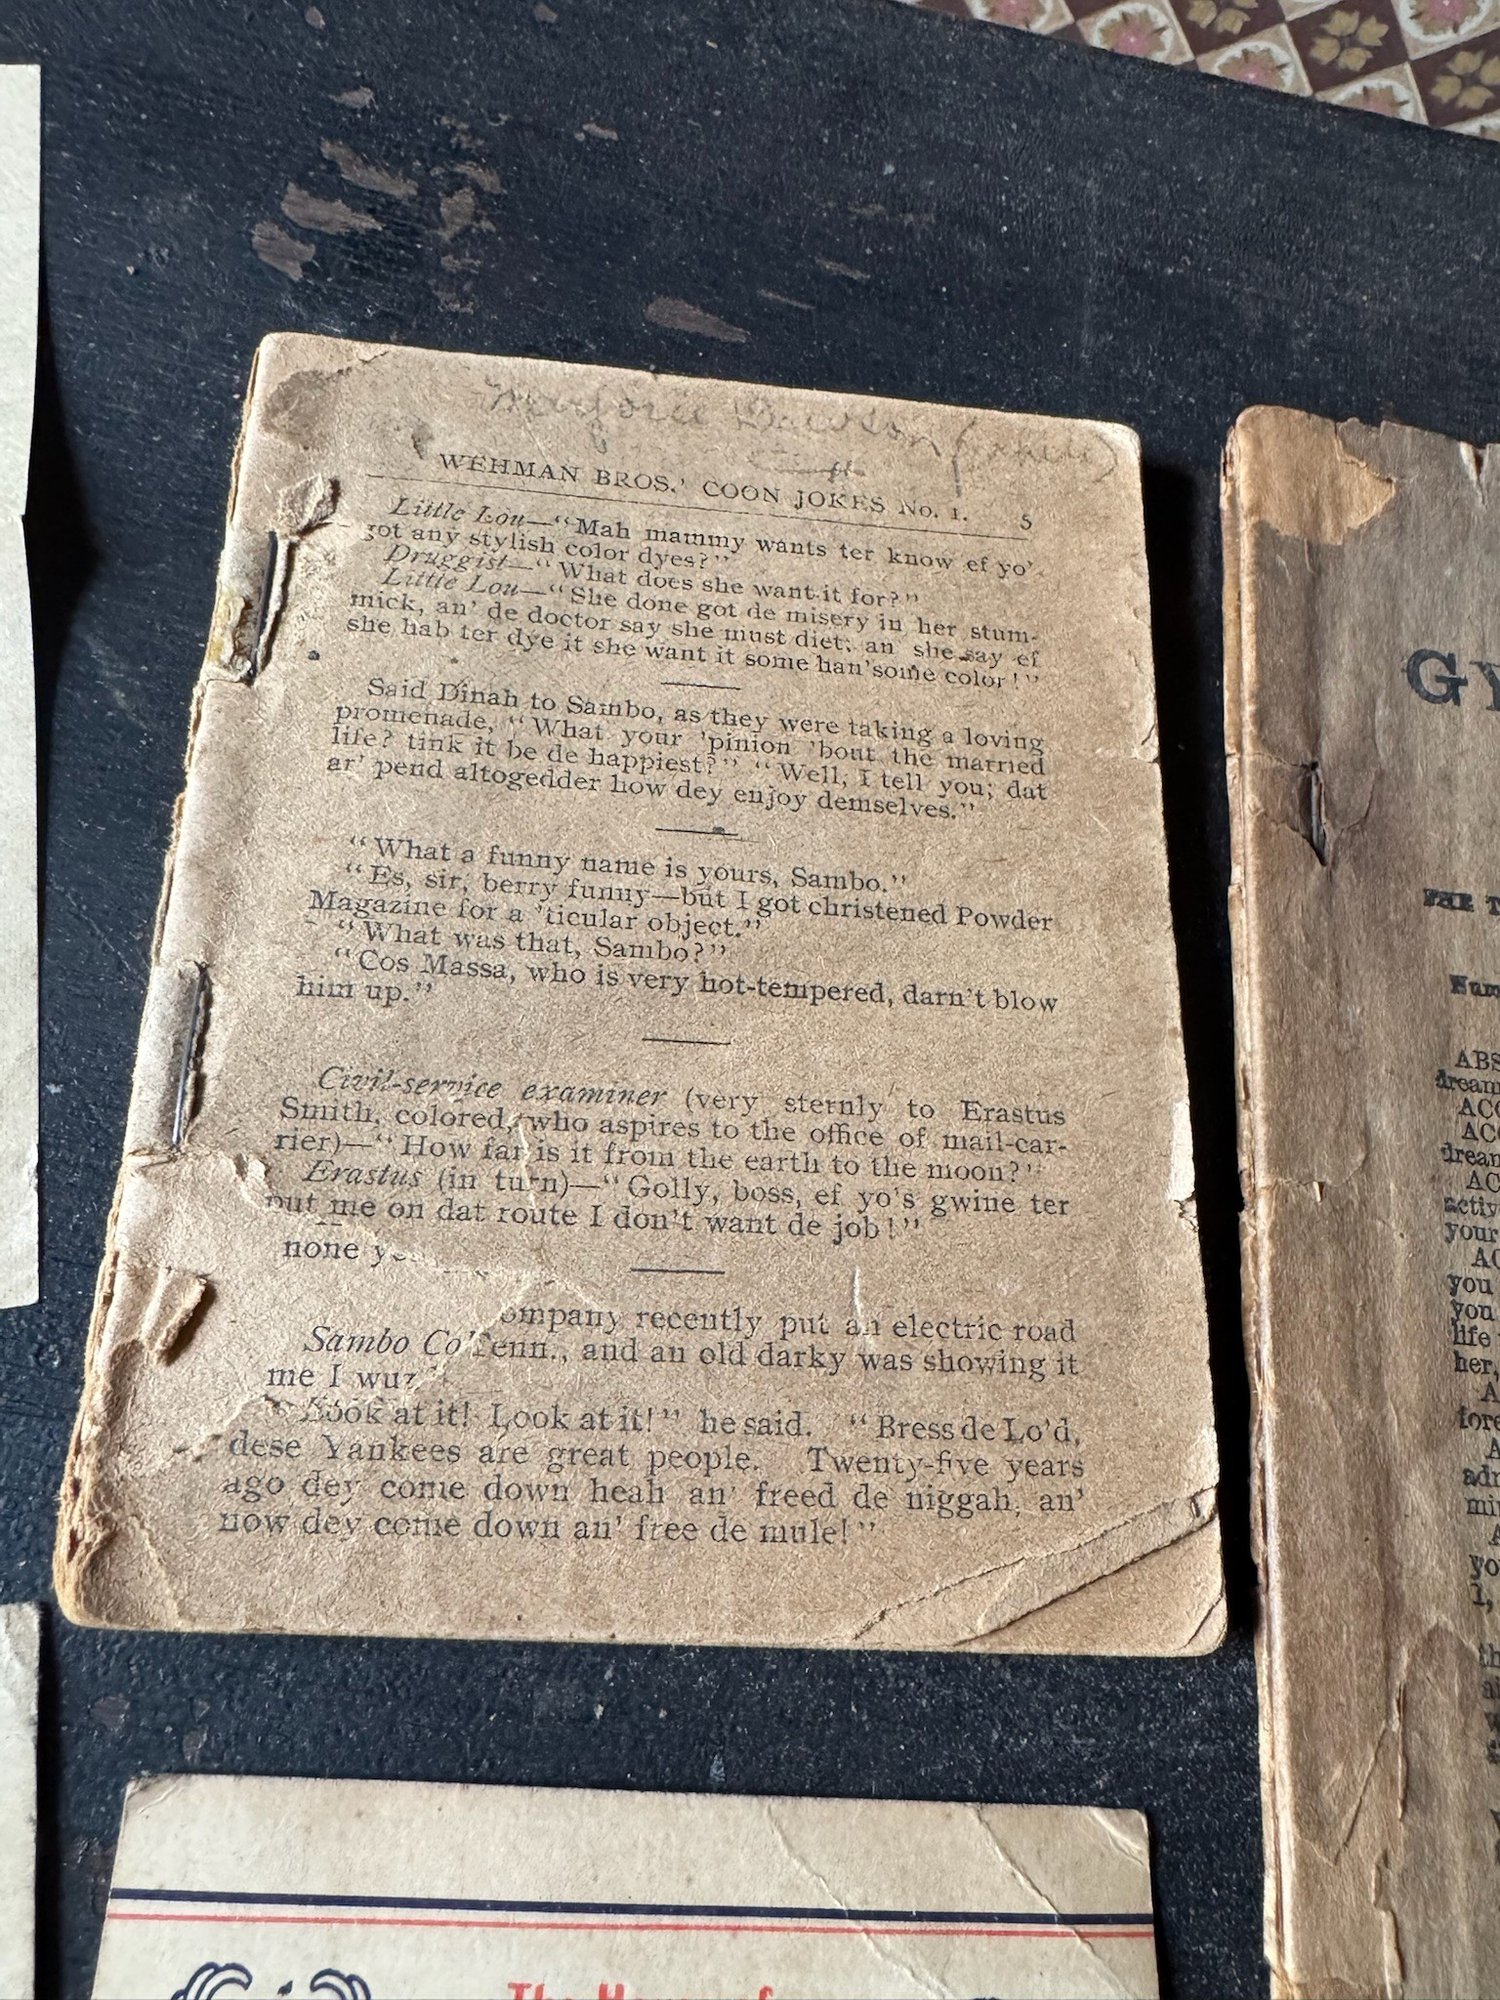 Marjorie Dawson (white)
WEHMAN BROS.' COON JOKES No. 1. 5
Little Lou—“Mah mammy wants ter know ef yo'
got any stylish color dyes?”
Druggist—“What does she want it for?”
Little Lou—“She done got de misery in her stum-
mick, an' de doctor say she must diet; an' she say ef
she hab ter dye it she want it some han'some color!”
Said Dinah to Sambo, as they were taking a loving
promenade, “What your 'pinion 'bout the married
life? tink it be de happiest?” “Well, I tell you; dat
ar' pend altogedder how dey enjoy demselves.”
“What a funny name is yours, Sambo.”
“Es, sir, berry funny—but I got christened Powder
Magazine for a 'ticular object.”
“What was that, Sambo?”
“Cos Massa, who is very hot-tempered, darn't blow
him up.”
Civil-service examiner (very sternly to Erastus
Smith, colored, who aspires to the office of mail-car-
rier)—“How far is it from the earth to the moon?”
Erastus (in turn)—“Golly, boss, ef yo's gwine ter
put me on dat route I don't want de job!”
none
ompany recently put an electric road
Sambo Co Tenn., and an old darky was showing it
me I wuz
Look at it! Look at it!” he said. “Bress de Lo'd,
dese Yankees are great people. Twenty-five years
ago dey come down heah an' freed de niggah, an'
now dey come down an' free de mule!”
GY
THE T
Num
ABS
dream
ACC
ACC
dream
AC
activ
your
AC
you
you
life
her,
A
fore
A
adm
min
A
yo
1,
th
The House of